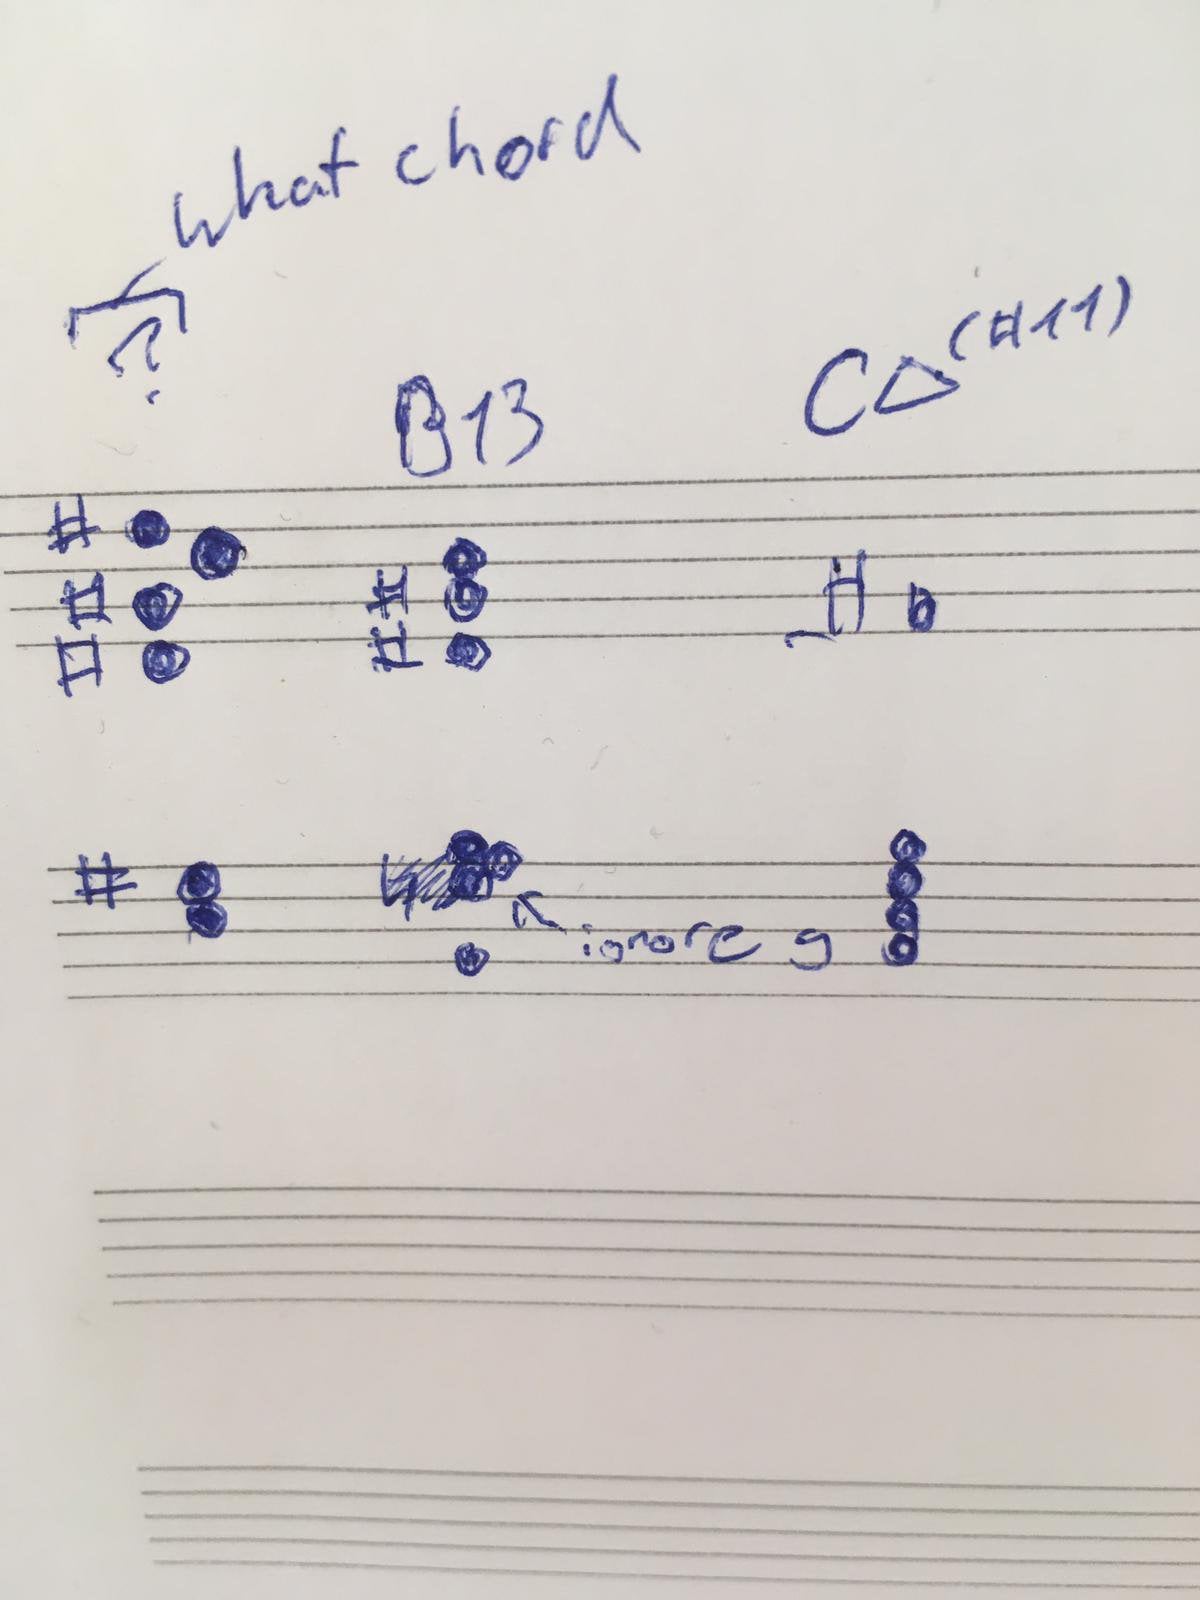 what chord
?
B13
C△(#11)
ignore g